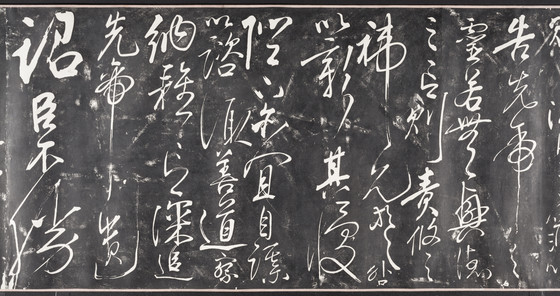 告先帝之
靈若無興德
之言則責攸之
禕允等咎
以彰其慢
陛下亦宜自課
以諮諏善道察
納雅言深追
先帝遺
詔臣不勝